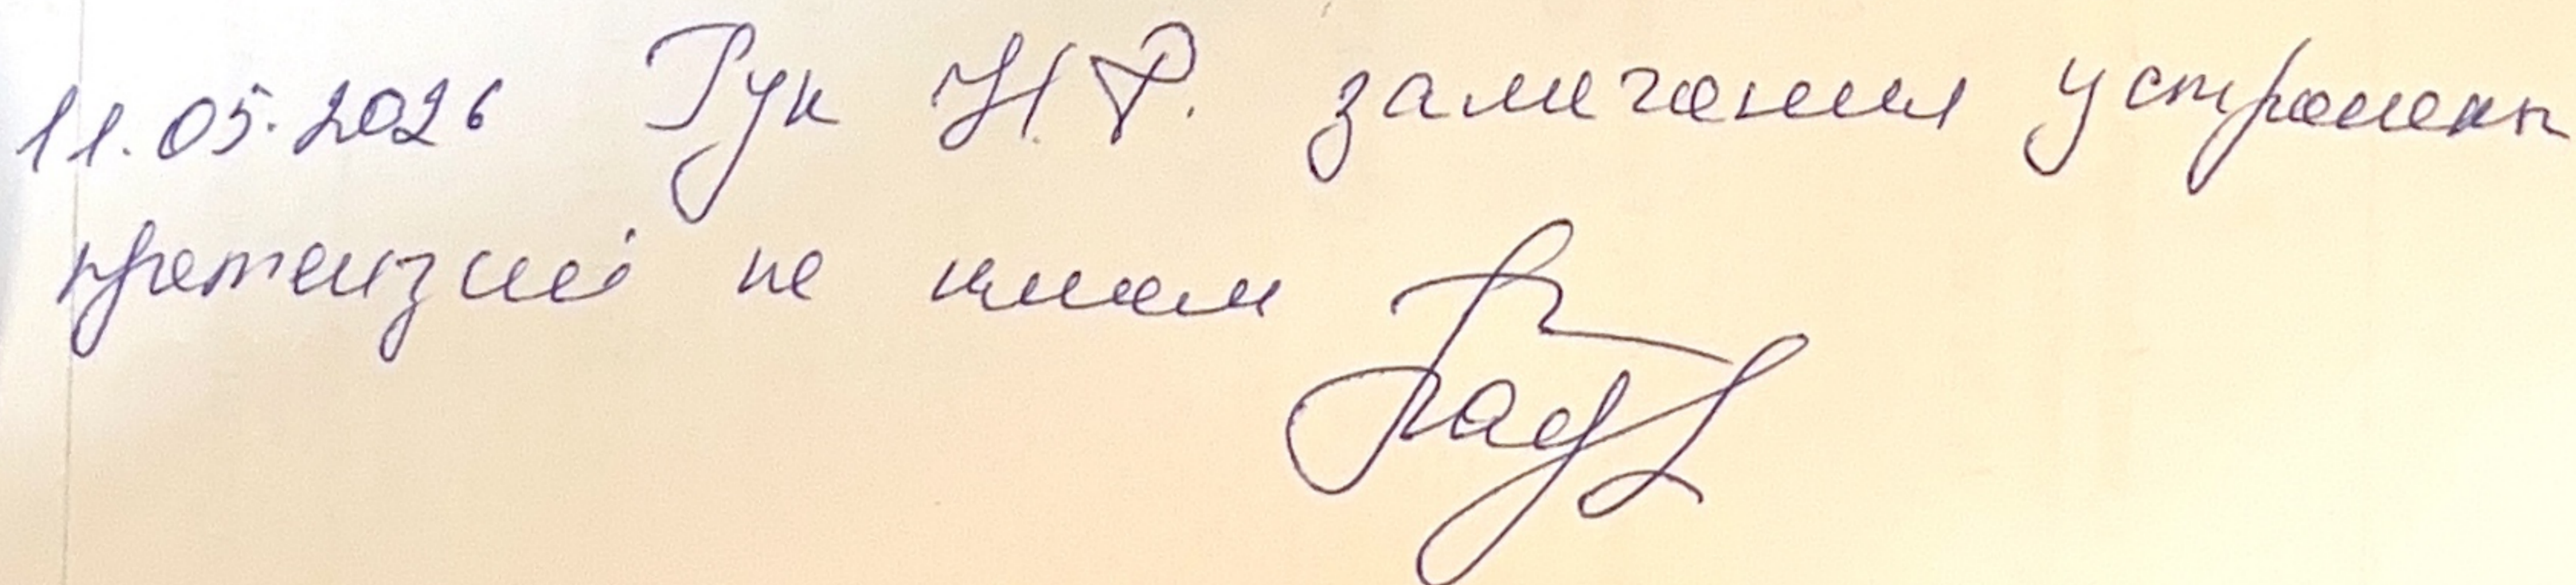 11.05.2026 Рук Н.Р. замечания устранены
претензий не имеем